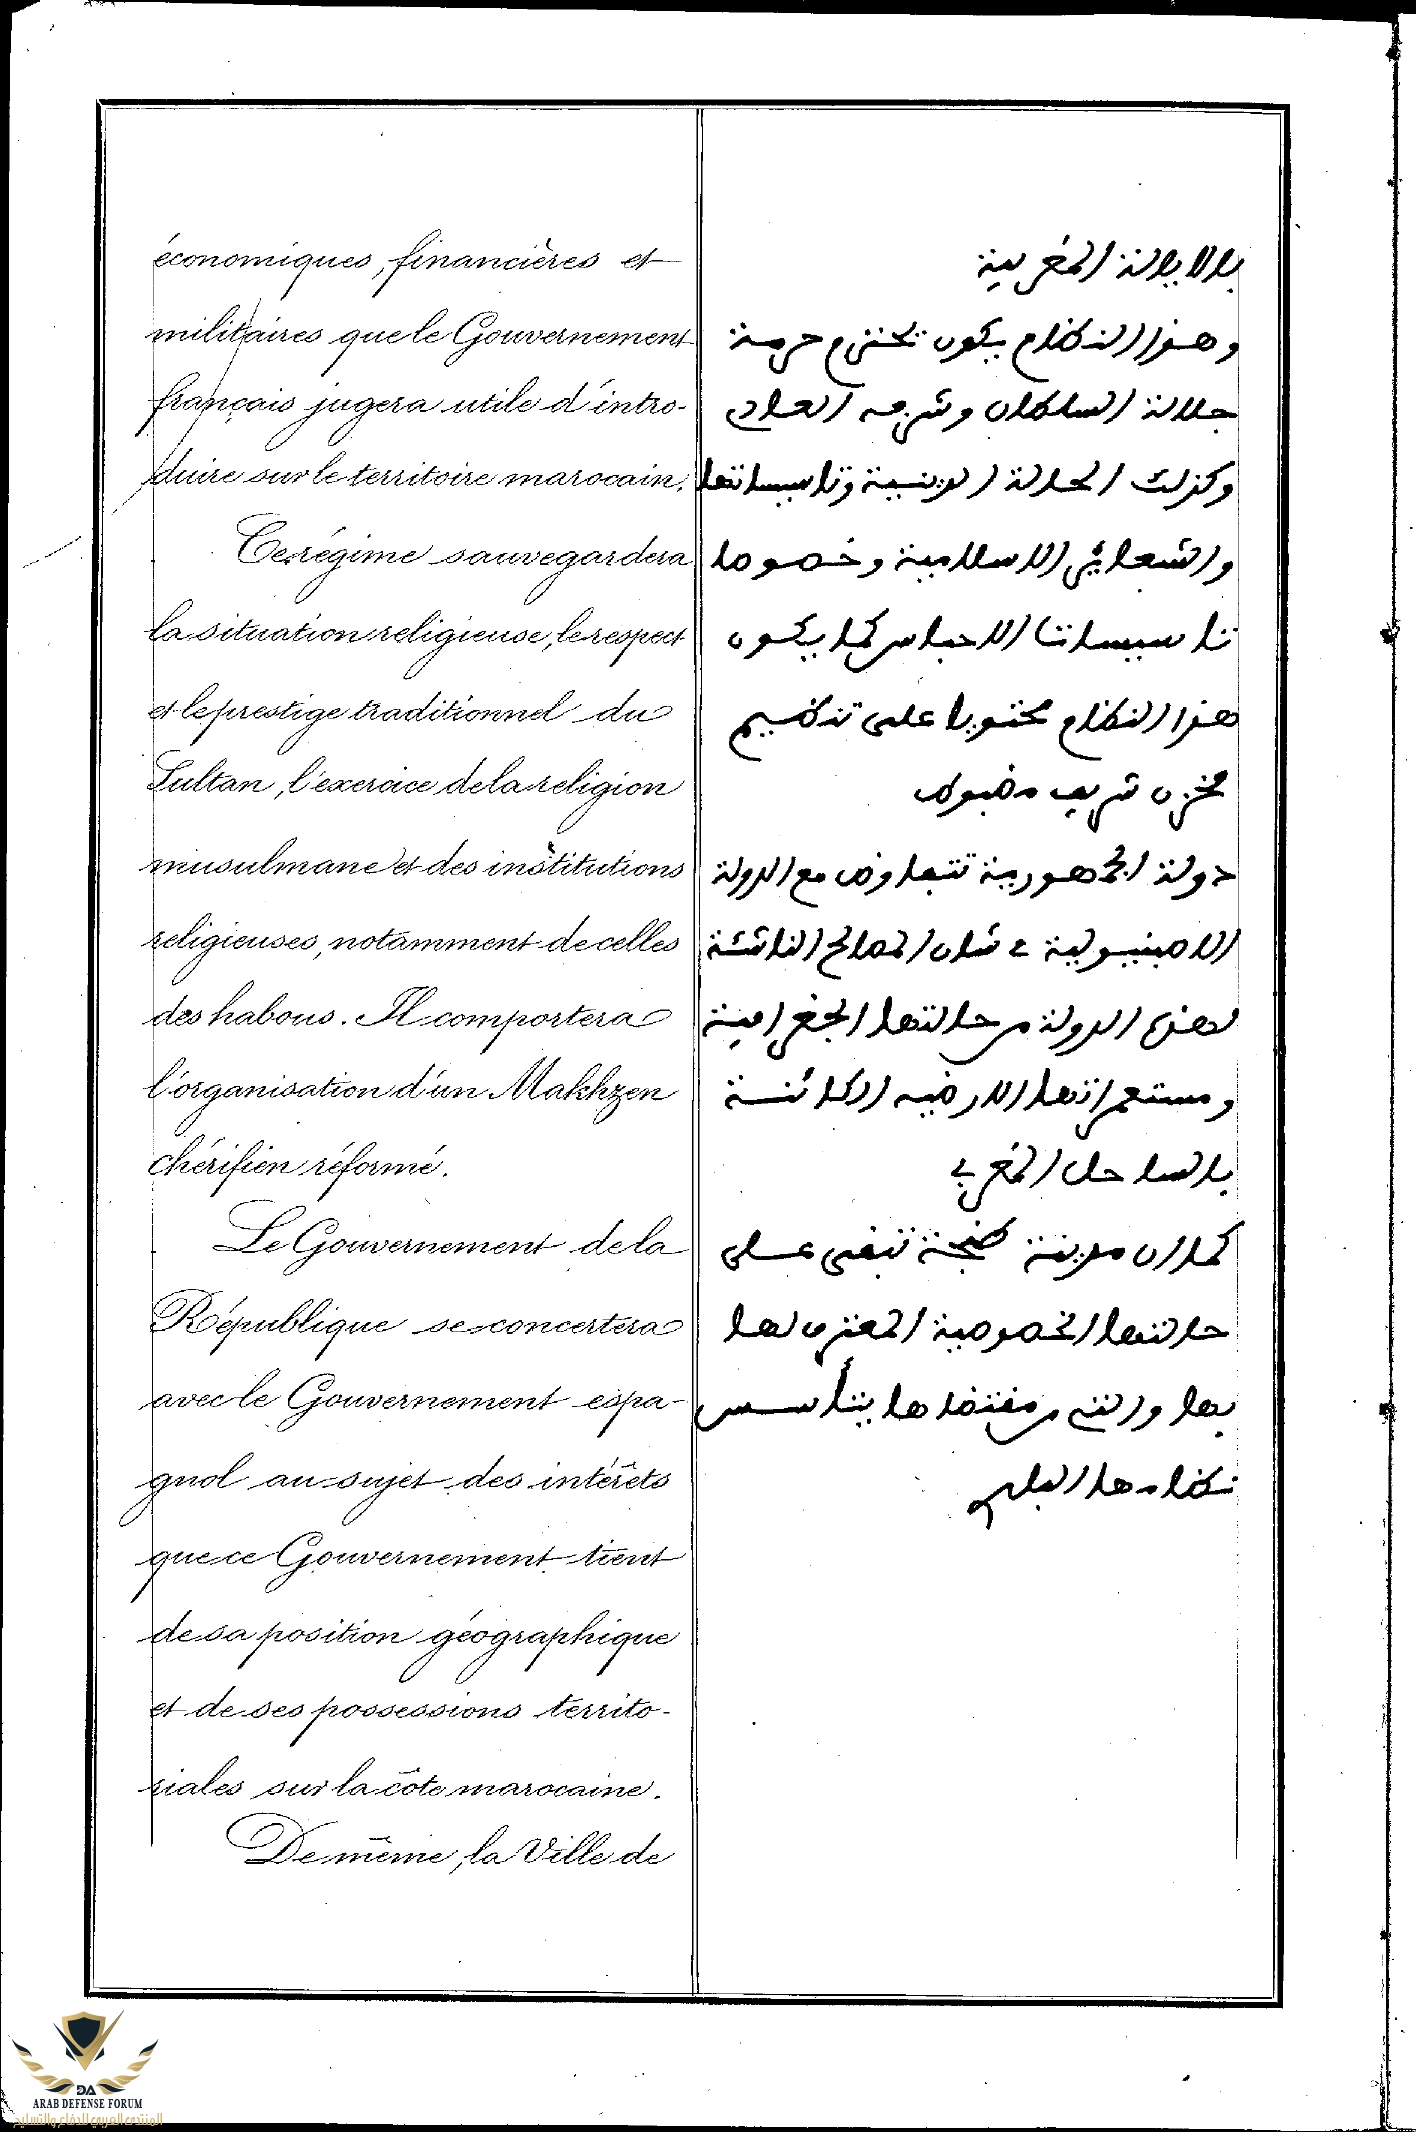 économiques, financières et
militaires que le Gouvernement
français jugera utile d'intro-
duire sur le territoire marocain.
Ce régime sauvegardera
la situation religieuse, le respect
et le prestige traditionnel du
Sultan, l'exercice de la religion
musulmane et des institutions
religieuses, notamment de celles
des habous. Il comportera
l'organisation d'un Makhzen
chérifien réformé.
Le Gouvernement de la
République se concertera
avec le Gouvernement espa-
gnol au sujet des intérêts
que ce Gouvernement tient
de sa position géographique
et de ses possessions territo-
riales sur la côte marocaine.
De même, la Ville de
بالايالة المغربية
وهذا النظام يكون يحترم حرمة
جلالة السلطان وشرفه العادي
وكذلك الحالة الدينية وتاسيساتها
والشعائر الاسلامية وخصوصا
تاسيسات الاحباس كما يكون
هذا النظام محتويا على تنظيم
مخزن شريف مضبوط
دولة الجمهورية تتفاوض مع الدولة
الاصبنيولية في شان المصالح الناشئة
لهذه الدولة من حالتها الجغرافية
ومستعمراتها الارضية الكائنة
بالساحل المغربي
كما ان مدينة طنجة تبقى على
حالتها الخصوصية المعترف لها
بها والتي من مقتضاها يتأسس
نظامها البلدي
DA
ARAB DEFENSE FORUM
المنتدى العربي للدفاع والتسليح